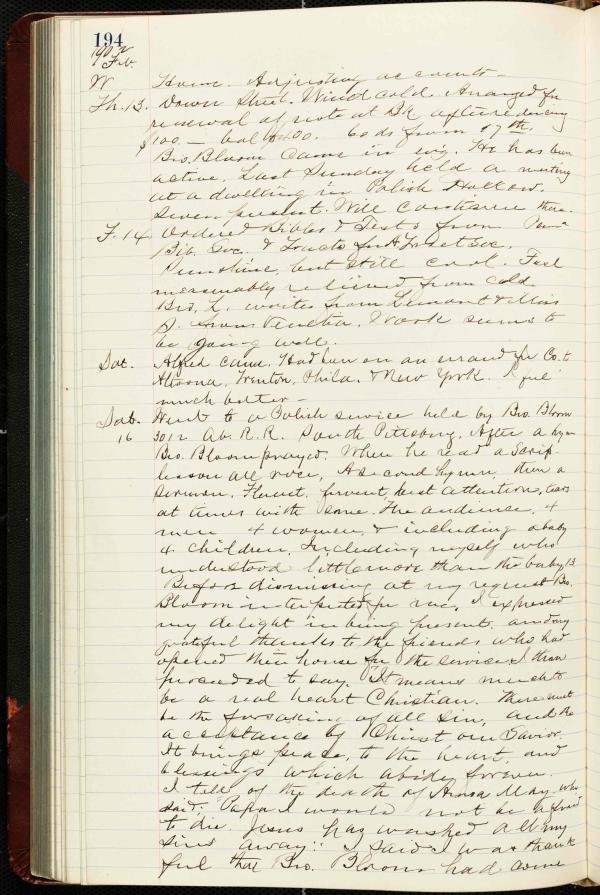 194
1902
Feb.
W Home. Adjusting accounts –
Th. 13. Down Street. Wind cold. Arranged for
renewal of note at Bk after
$100. – bal 60 ds from 17th.
Bro. Bloom came in evg. He has been
active. Last Sunday held a meeting
at a dwelling in Polish Hollow.
Seven present. Will continue there.
F. 14 Ordered Bibles & Tests from Penna
Bib. Soc. & Tracts fr A Tract Soc.
Sunshine, but still cool. Feel
measurably relieved from cold.
Bro. L. writes from Lemont & Miss
S. from Venetia. Work seems to
be going well.
Sat. Alfred came. Had been on an errand for Co. to
Altoona, Trenton, Phila. & New York. I feel
much better –
Sab. Went to a Polish service held by Bro. Bloom
16 3012 Ab. R.R. South Pittsburg. After a hymn
Bro. Bloom prayed. When he read a Scrip.
lesson all rose, A second hymn, then a
sermon. Fluent, fervent, best attention, tears
at times with some. The audience, 4
men 4 women, & including a baby
4 children. Including myself who
understood little more than the baby 13
Before dismissing at my request Bro.
Bloom interpreted for me. I expressed
my delight in being present, and my
grateful thanks to the friends who had
opened their house for the service & then
proceeded to say. "It means much to
be a real heart Christian. There must
be the forsaking of all sin, and the
acceptance of Christ our Savior.
It brings peace, to the heart, and
blessings which abide forever.
I tell of the death of Anna May who
said; "Papa I would not be afraid
to die. Jesus has washed all my
sins away". I said I was thank
ful that Bro. Bloom had come